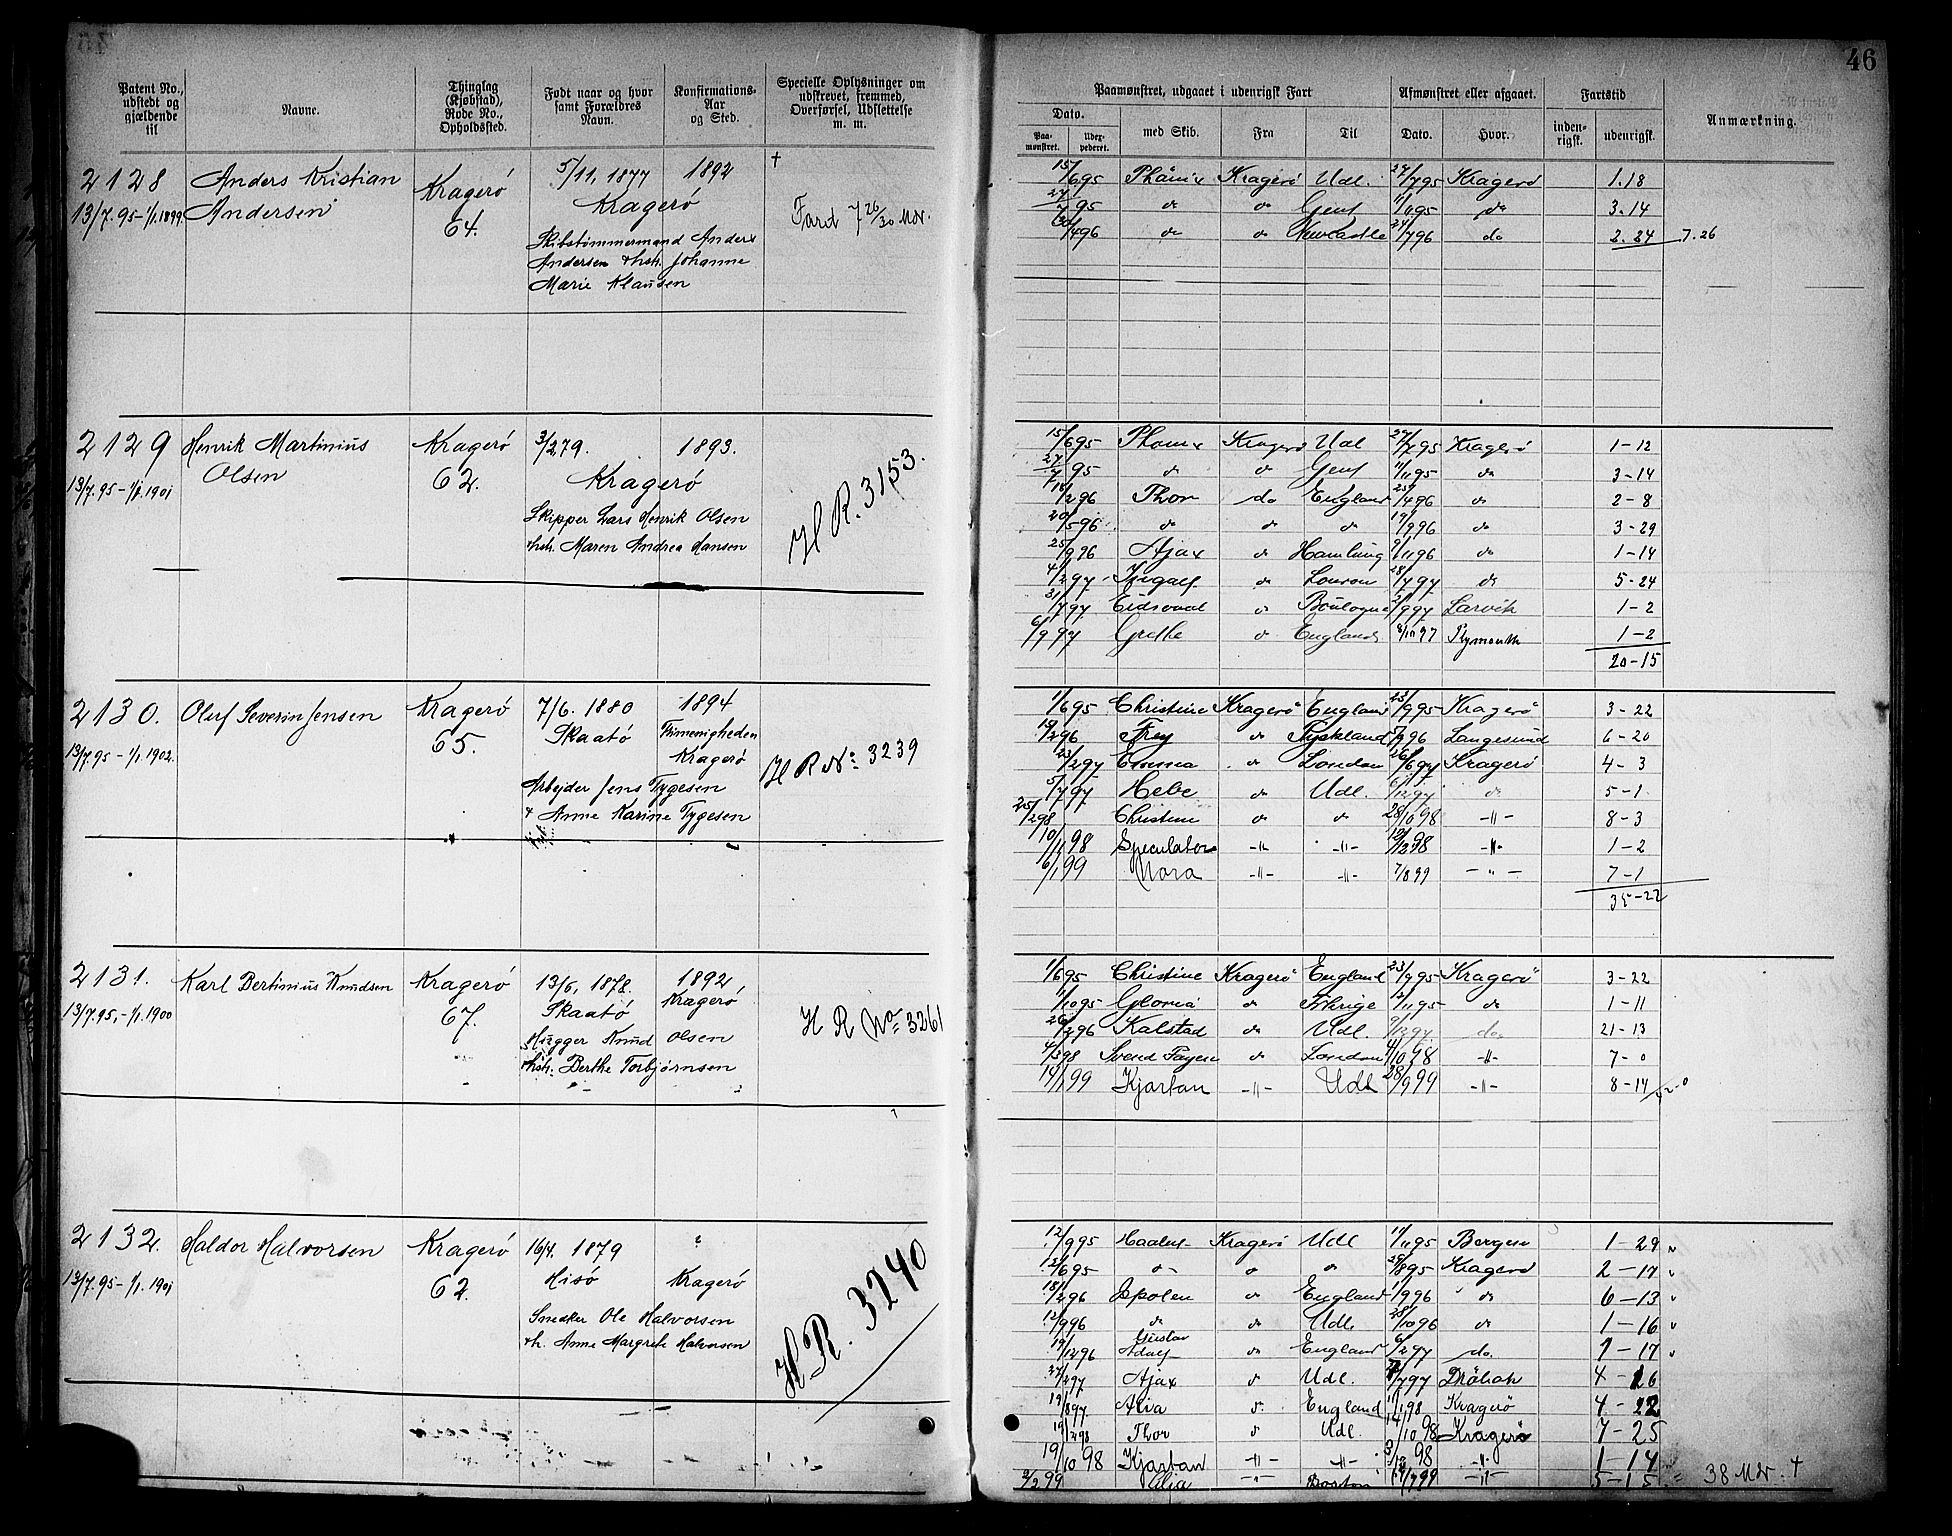 46
Patent No., udstedt og gjældende til
Navne.
Thinglag (Kjøbstad), Rode No., Opholdssted.
Født naar og hvor samt Forældres Navn.
Konfirmations-Aar og Sted.
Specielle Oplysninger om udskrevet, fremmed, Overførsel, Udslettelse m. m.
Paamønstret, udgaaet i udenrigsk Fart
Afmønstret eller afgaaet.
Fartstid
Anmærkning.
Dato.
Paa-mønstret.
Uder-pederet.
med Skib.
Fra
Til
Dato.
Hvor.
inden-rigsk.
udenrigsk.
2128 Anders Kristian Kragerö 5/11, 1877 1892 +
13/7.95-1/1.1899 Andersen 64. Kragerö Fard 7 26/30 Mdr.
Skibstömmermand Anders
Andersen & hstr. Johanne
Marie Klausen
15/6 95 Phönix Kragerö Udl. 27/7 95 Kragerö 1.18
27/7 95 do do Gent 11/11 95 do 3.14
4 96 do do Newcastle 7 96 do 2.24 7.26
2129 Henrik Martinius Kragerö 3/2 79. 1893.
13/7.95-1/1.1901 Olsen 62. Kragerö H R. 3153.
Skipper Lars Henrik Olsen
& hstr. Maren Andrea Hansen
15/6 95 Phönix Kragerö Udl 27/7 95 Kragerö 1-12
27/7 95 do do Gent 11/11 95 do 3-14
2 96 Thor do England 4 96 do 2-8
20/5 96 do do do 19/9 96 do 3-29
25/9 96 Ajax do 11 96 do 1-14
4/2 97 do 28/7 97 do 5-24
31/7 97 Eidsvold do Boulogne 9 97 Larvik 1-2
6/9 97 Grethe do England 8/10 97 Plymouth 1-2
20-15
2130. Oluf Severin Jensen Kragerö 7/6. 1880 1894
13/7.95-1/1.1902. 65. Skaatö Frimenigheden
Kragerö H R No: 3239
Arbejder Jens Tygesen
& Anne Karine Tygesen
1/6 95 Christine Kragerö England 23/9 95 Kragerö 3-22
19/2 96 Frey do Tyskland 9 96 Langesund 6-20
23/2 97 Emma do London 26/6 97 Kragerö 4-3
5/7 97 Hebe do Udl. 12 97 do 5-1
25/2 98 Christine do do 28/10 98 -"- 8-3
10/11 98 Speculator -"- -"- 12/12 98 -"- 1-2
6/1 99 Nora -"- -"- 7/8 99 -"- 7-1
35-22
2131. Karl Bertinius Knudsen Kragerö 13/6, 1878. 1892
13/7.95,-1/1.1900 67. Skaatö Kragerö H R No 3261
Hugger Knud Olsen
& hstr. Berthe Torbjørnsen
1/6 95 Christine Kragerö England 23/9 95 Kragerö 3-22
1/10 95 Gloria do 12/11 95 do 1-11
26/2 96 Kalstad do Udl. 9/12 97 do 21-13
4/3 98 Svend Foyen do London 4/10 98 -"- 7-0
14/1 99 Kjartan -"- Udl 28/9 99 -"- 8-14
2132. Haldor Halvorsen Kragerö 16/4. 1879 ?
13/7.95-1/1.1901 62. Hisö Kragerö H R. 3240
Snedker Ole Halvorsen
& h. Anne Margrethe Halvorsen
12/9 95 Kragerö Udl 11/11 95 Bergen 1-29 "
12/6 95 do do do 29/8 95 Kragerö 2-17 "
18/2 96 Ispolen do England 1/9 96 do 6-13 "
12/9 96 do do Udl. 28/10 96 do 1-16 "
19/12 96 Gustav Adolf do England 6/2 97 do. 1-17 "
27/2 97 Ajax do Udl. 7 97 Dröbak 4-26
19/8 97 do England 11/1 98 Kragerö 4-22
19/2 98 Thor do Udl. 14/10 98 Kragerö 7-25
19/10 98 Kjartan -"- -"- 3/12 98 -"- 1-14
2/2 99 -"- Boston 7 99 -"- 5-15 = 38 Mdr. +